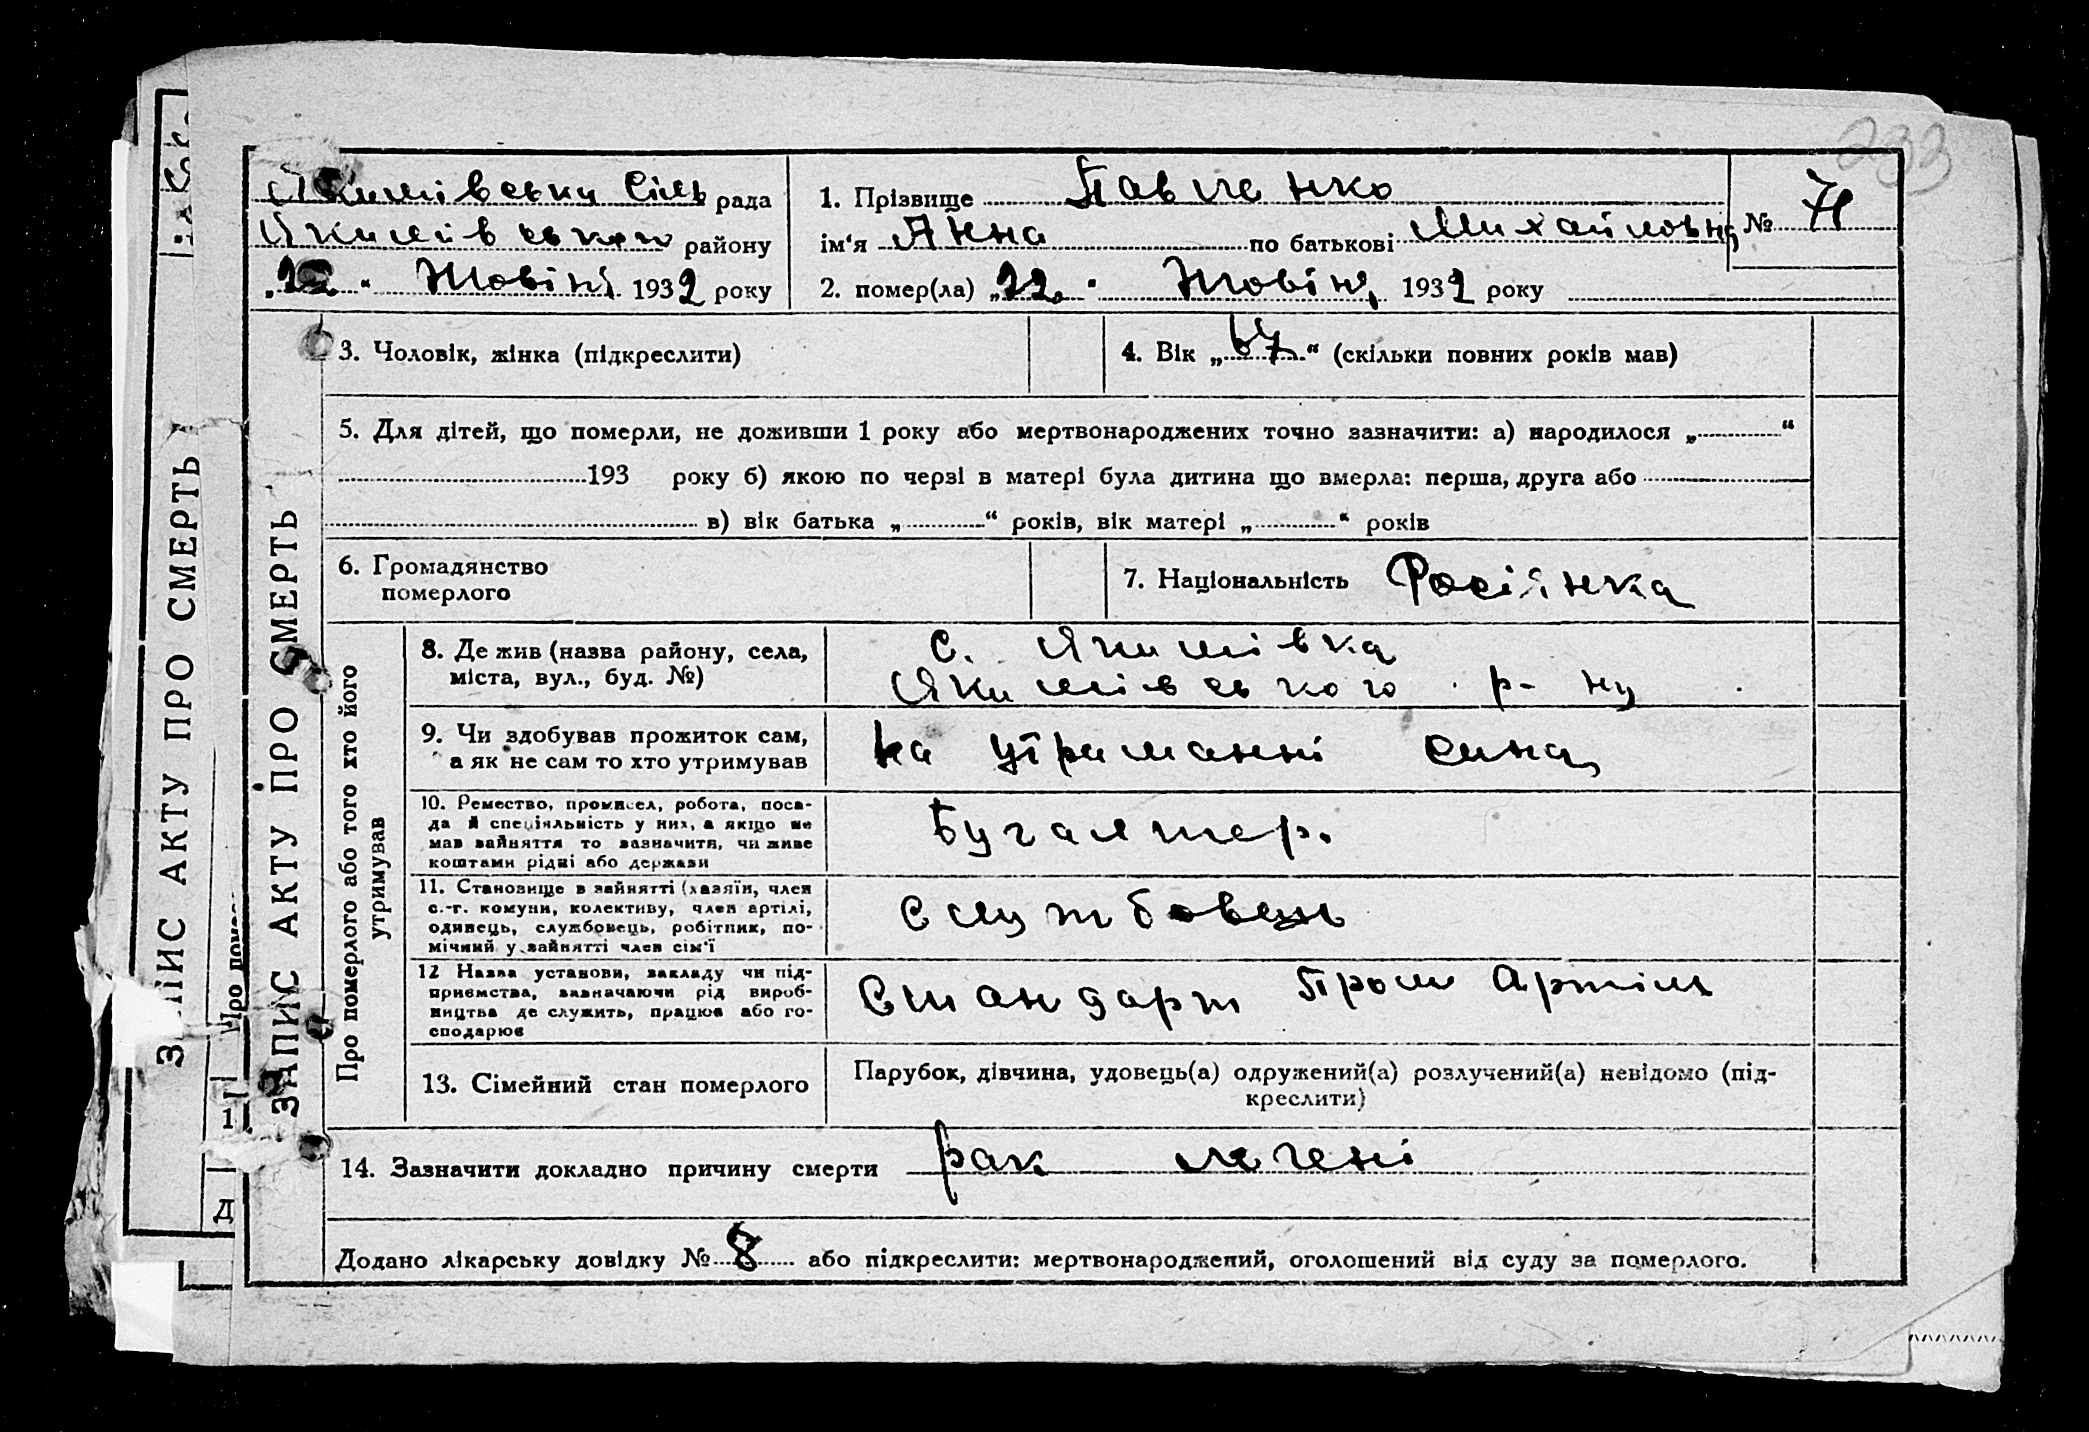 233
Якимівська Сіль рада
Якимівського району
"22" Жовтня 1932 року
1. Прізвище Павленко
ім'я Анна по батькові Михайловна
№ 71
2. помер(ла) "22" Жовтня 1932 року
3. Чоловік, жінка (підкреслити)
4. Вік „67“ (скільки повних років мав)
5. Для дітей, що померли, не доживши 1 року або мертвонароджених точно зазначити: а) народилося „ “
193 року б) якою по черзі в матері була дитина що вмерла: перша, друга або
в) вік батька „ “ років, вік матері „ “ років
6. Громадянство
померлого
7. Національність Росіянка
ЗАПИС АКТУ ПРО СМЕРТЬ
ЗАПИС АКТУ ПРО СМЕРТЬ
Про померлого або того хто його
утримував
8. Де жив (назва району, села,
міста, вул., буд. №)
с. Якимівка
Якимівського р-ну
9. Чи здобував прожиток сам,
а як не сам то хто утримував
На утриманні сина
10. Ремество, промисел, робота, поса-
да й спеціяльність у них, а якщо не
мав зайняття то зазначити, чи живе
коштами рідні або держави
Бугалтер.
11. Становище в зайнятті (хазяїн, член
с.-г. комуни, колективу, член артілі,
одинець, службовець, робітник, по-
мічний у зайнятті член сім'ї
Службовець
12 Назва установи, закладу чи під-
приємства, зазначаючи рід вироб-
ництва де служить, працює або го-
сподарює
Стандарт Пром Артіль
13. Сімейний стан померлого
Парубок, дівчина, удовець(а) одружений(а) розлучений(а) невідомо (під-
креслити)
14. Зазначити докладно причину смерти рак печені
Додано лікарську довідку № 8 або підкреслити: мертвонароджений, оголошений від суду за померлого.